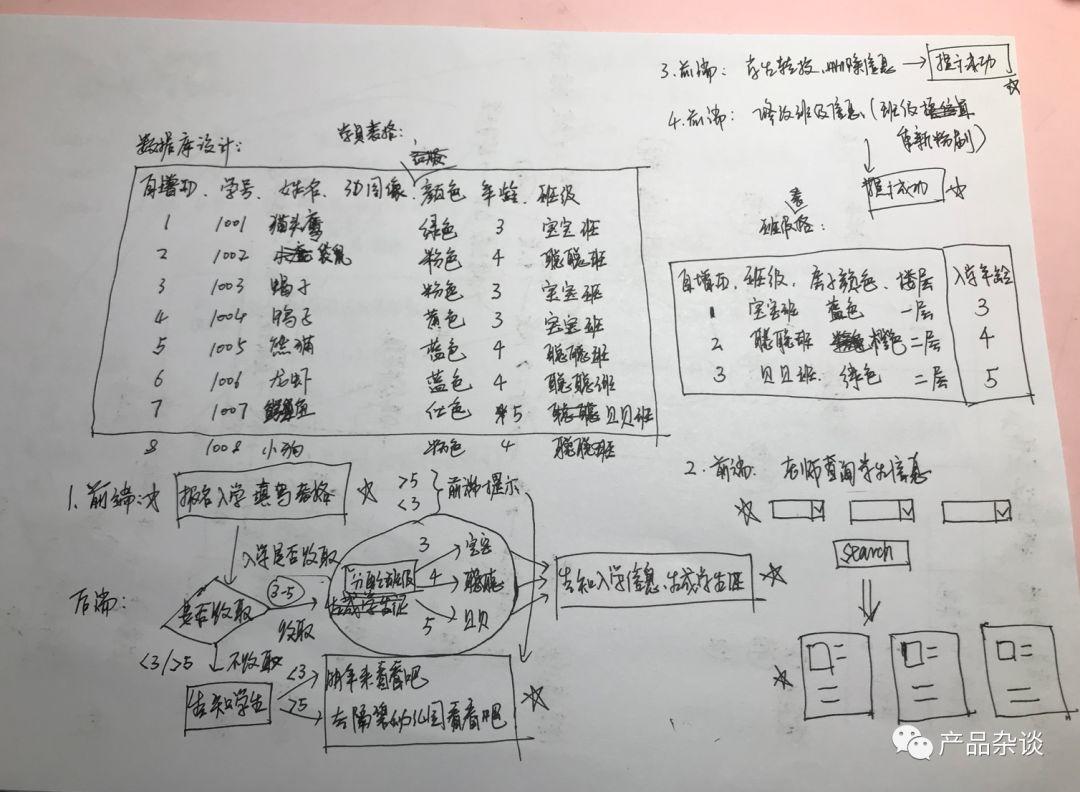 3.前端: 学生转校、删除信息 → 提示成功
4.前端: 修改班级信息、(班级
重新分配)
提示成功
数据库设计:
学员表格:
自增ID、学号、姓名、3D图像、颜色 年龄、班级
1 1001 猫头鹰 绿色 3 宝宝班
2 1002 袋鼠 粉色 4 聪聪班
3 1003 鸭子 粉色 3 宝宝班
4 1004 鸭子 黄色 3 宝宝班
5 1005 熊猫 蓝色 4 聪聪班
6 1006 龙虾 蓝色 4 聪聪班
7 1007 鱼 红色 5 贝贝班
8 1008 小狗 粉色 4 聪聪班
班级表格:
自增ID、班级、房子颜色、楼层 入学年龄
1 宝宝班 蓝色 一层 3
2 聪聪班 橙色 二层 4
3 贝贝班 绿色 二层 5
1.前端: 报名入学填写表格
>5
<3
前端提示
入学是否收取
后端:
是否收取
3-5
收取
分配班级
生成学生证
3 宝宝
4 聪聪
5 贝贝
告知入学信息、生成学生证
<3/>5 不收取
告知学生
<3 明年来看看吧
>5 去隔壁幼儿园看看吧
2.前端: 老师查询学生信息
search
产品杂谈